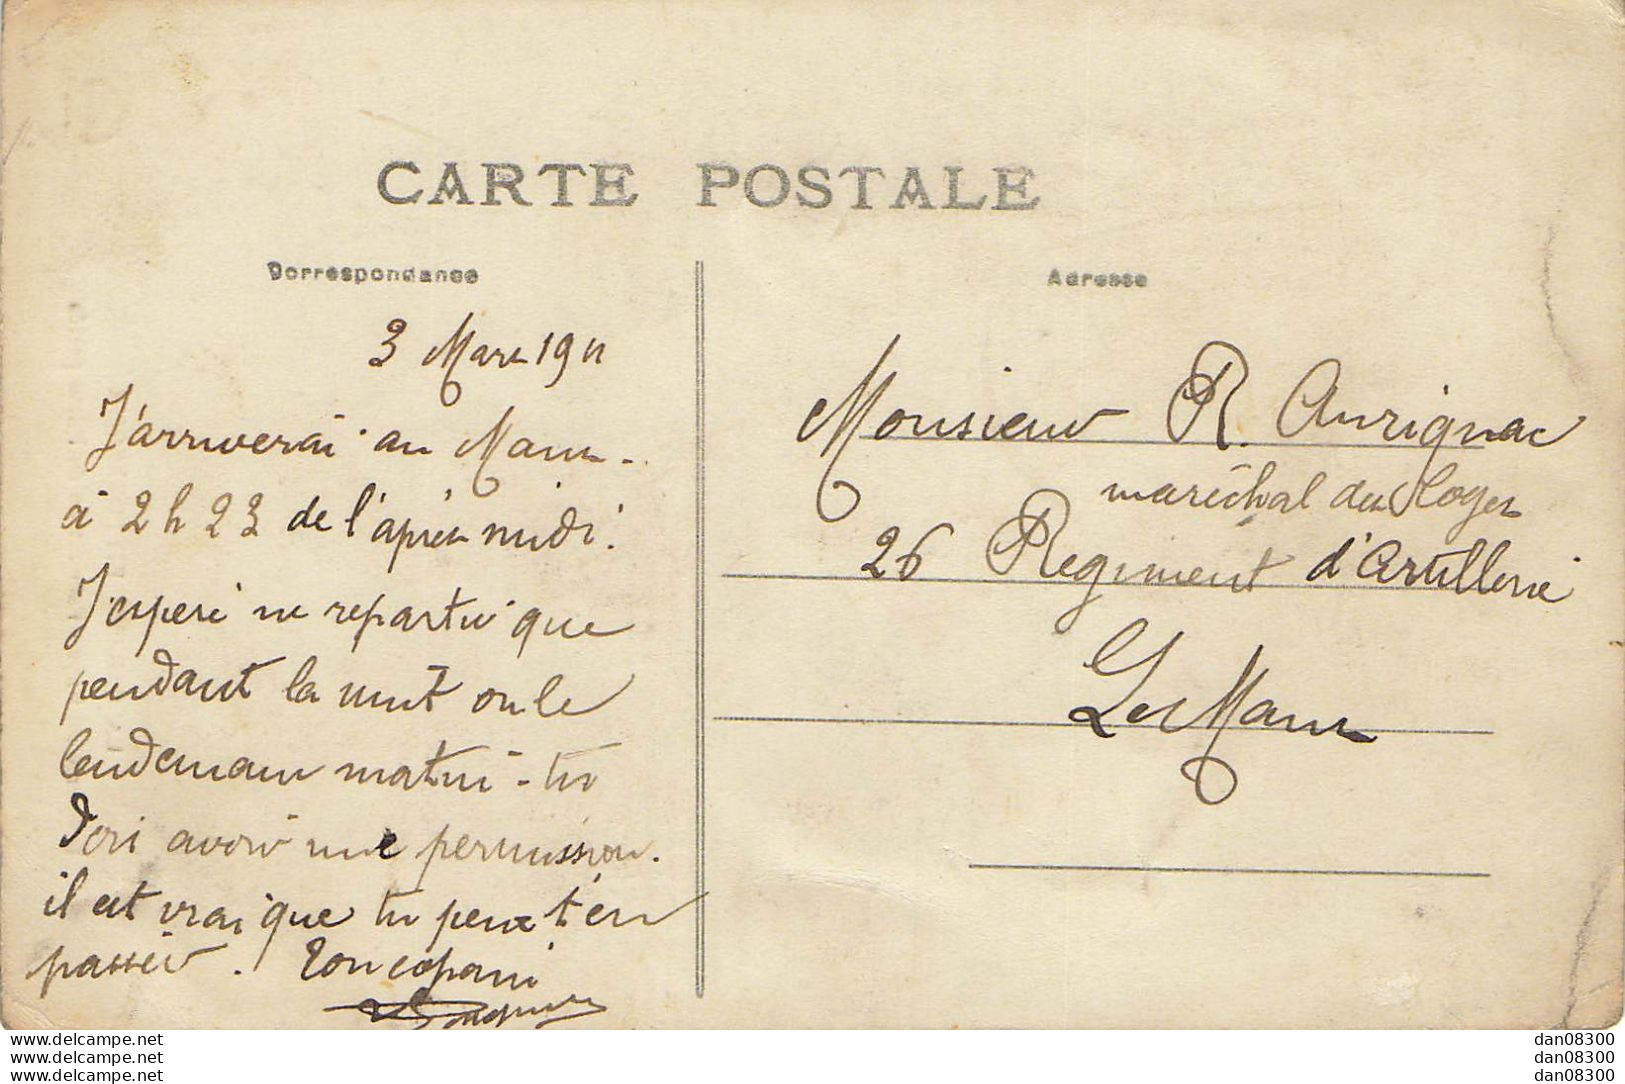 CARTE POSTALE
Correspondance
3 Mars 1911
J'arriverai au Mans
à 2 h 23 de l'après midi.
J'espère ne repartir que
pendant la nuit ou le
lendemain matin - tu
dois avoir une permission.
il est vrai que tu peux t'en
passer. Ton copain
Adresse
Monsieur R. Aurignac
maréchal des logis
26 Regiment d'Artillerie
Le Mans
www.delcampe.net
www.delcampe.net
www.delcampe.net
dan08300
dan08300
dan08300